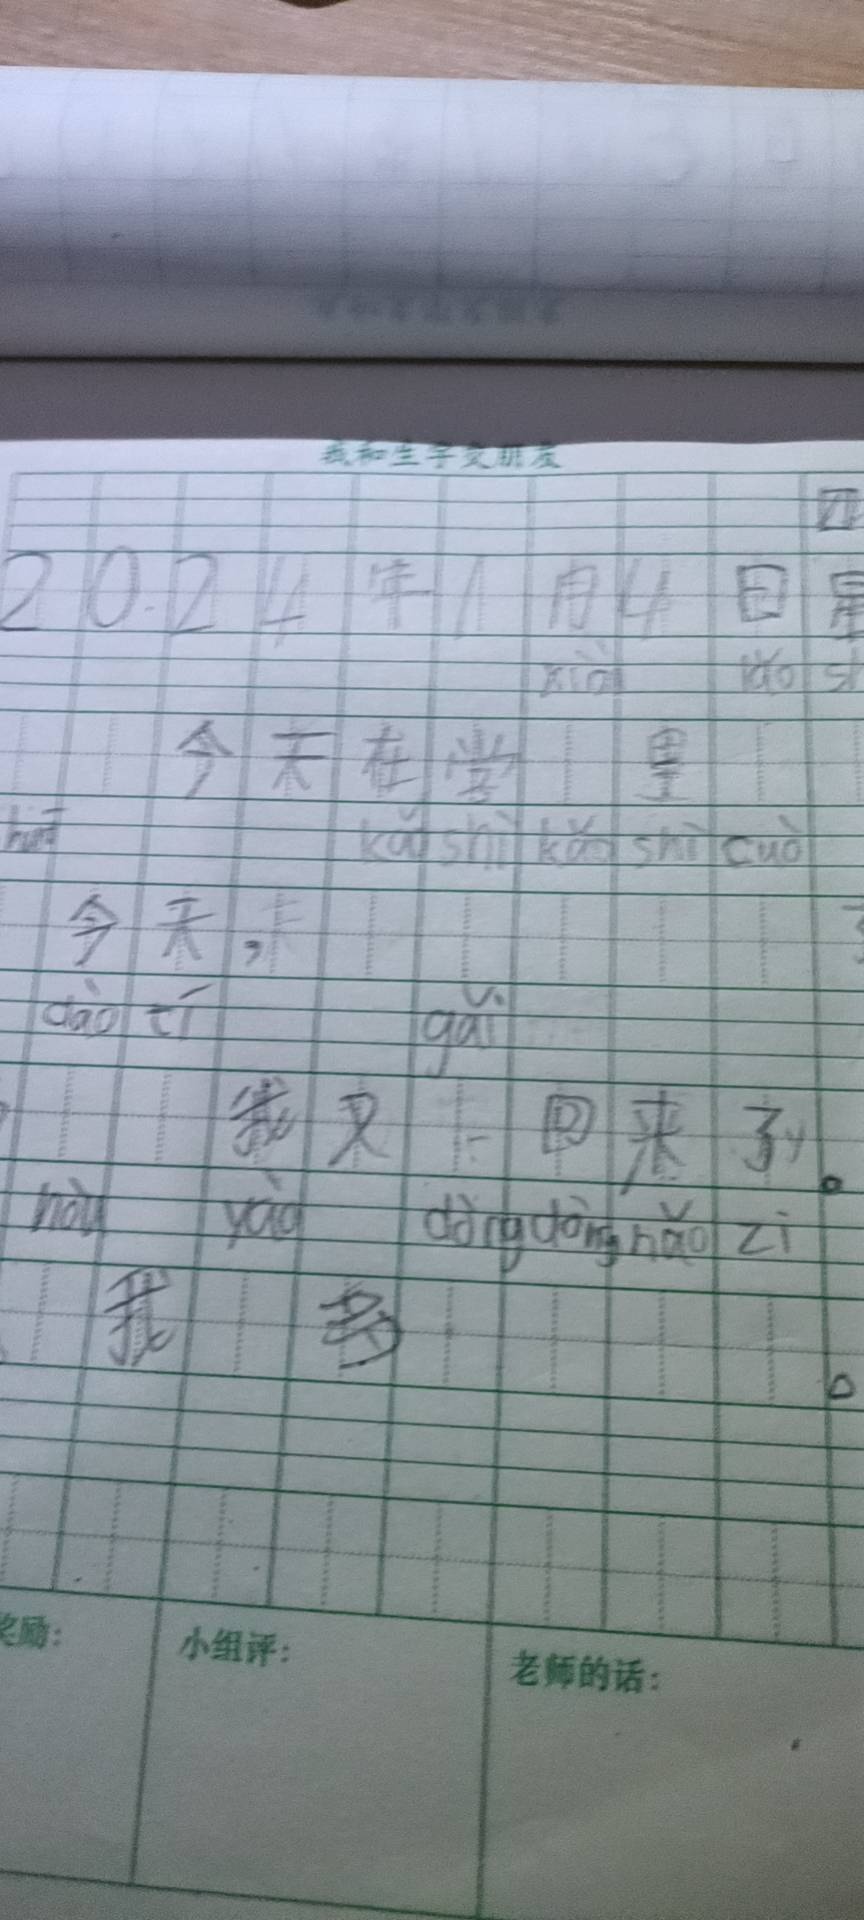 我和生字交朋友
四
2024年1月4日星
xiào lǎo sh
今天在学 里
huā
kǎo shì kǎo shì cuò
今天,
dào tí gǎi
我又 回来了。
hòu yào dòng dòng nǎo zi
我 多 。
奖励: 小组评: 老师的话: